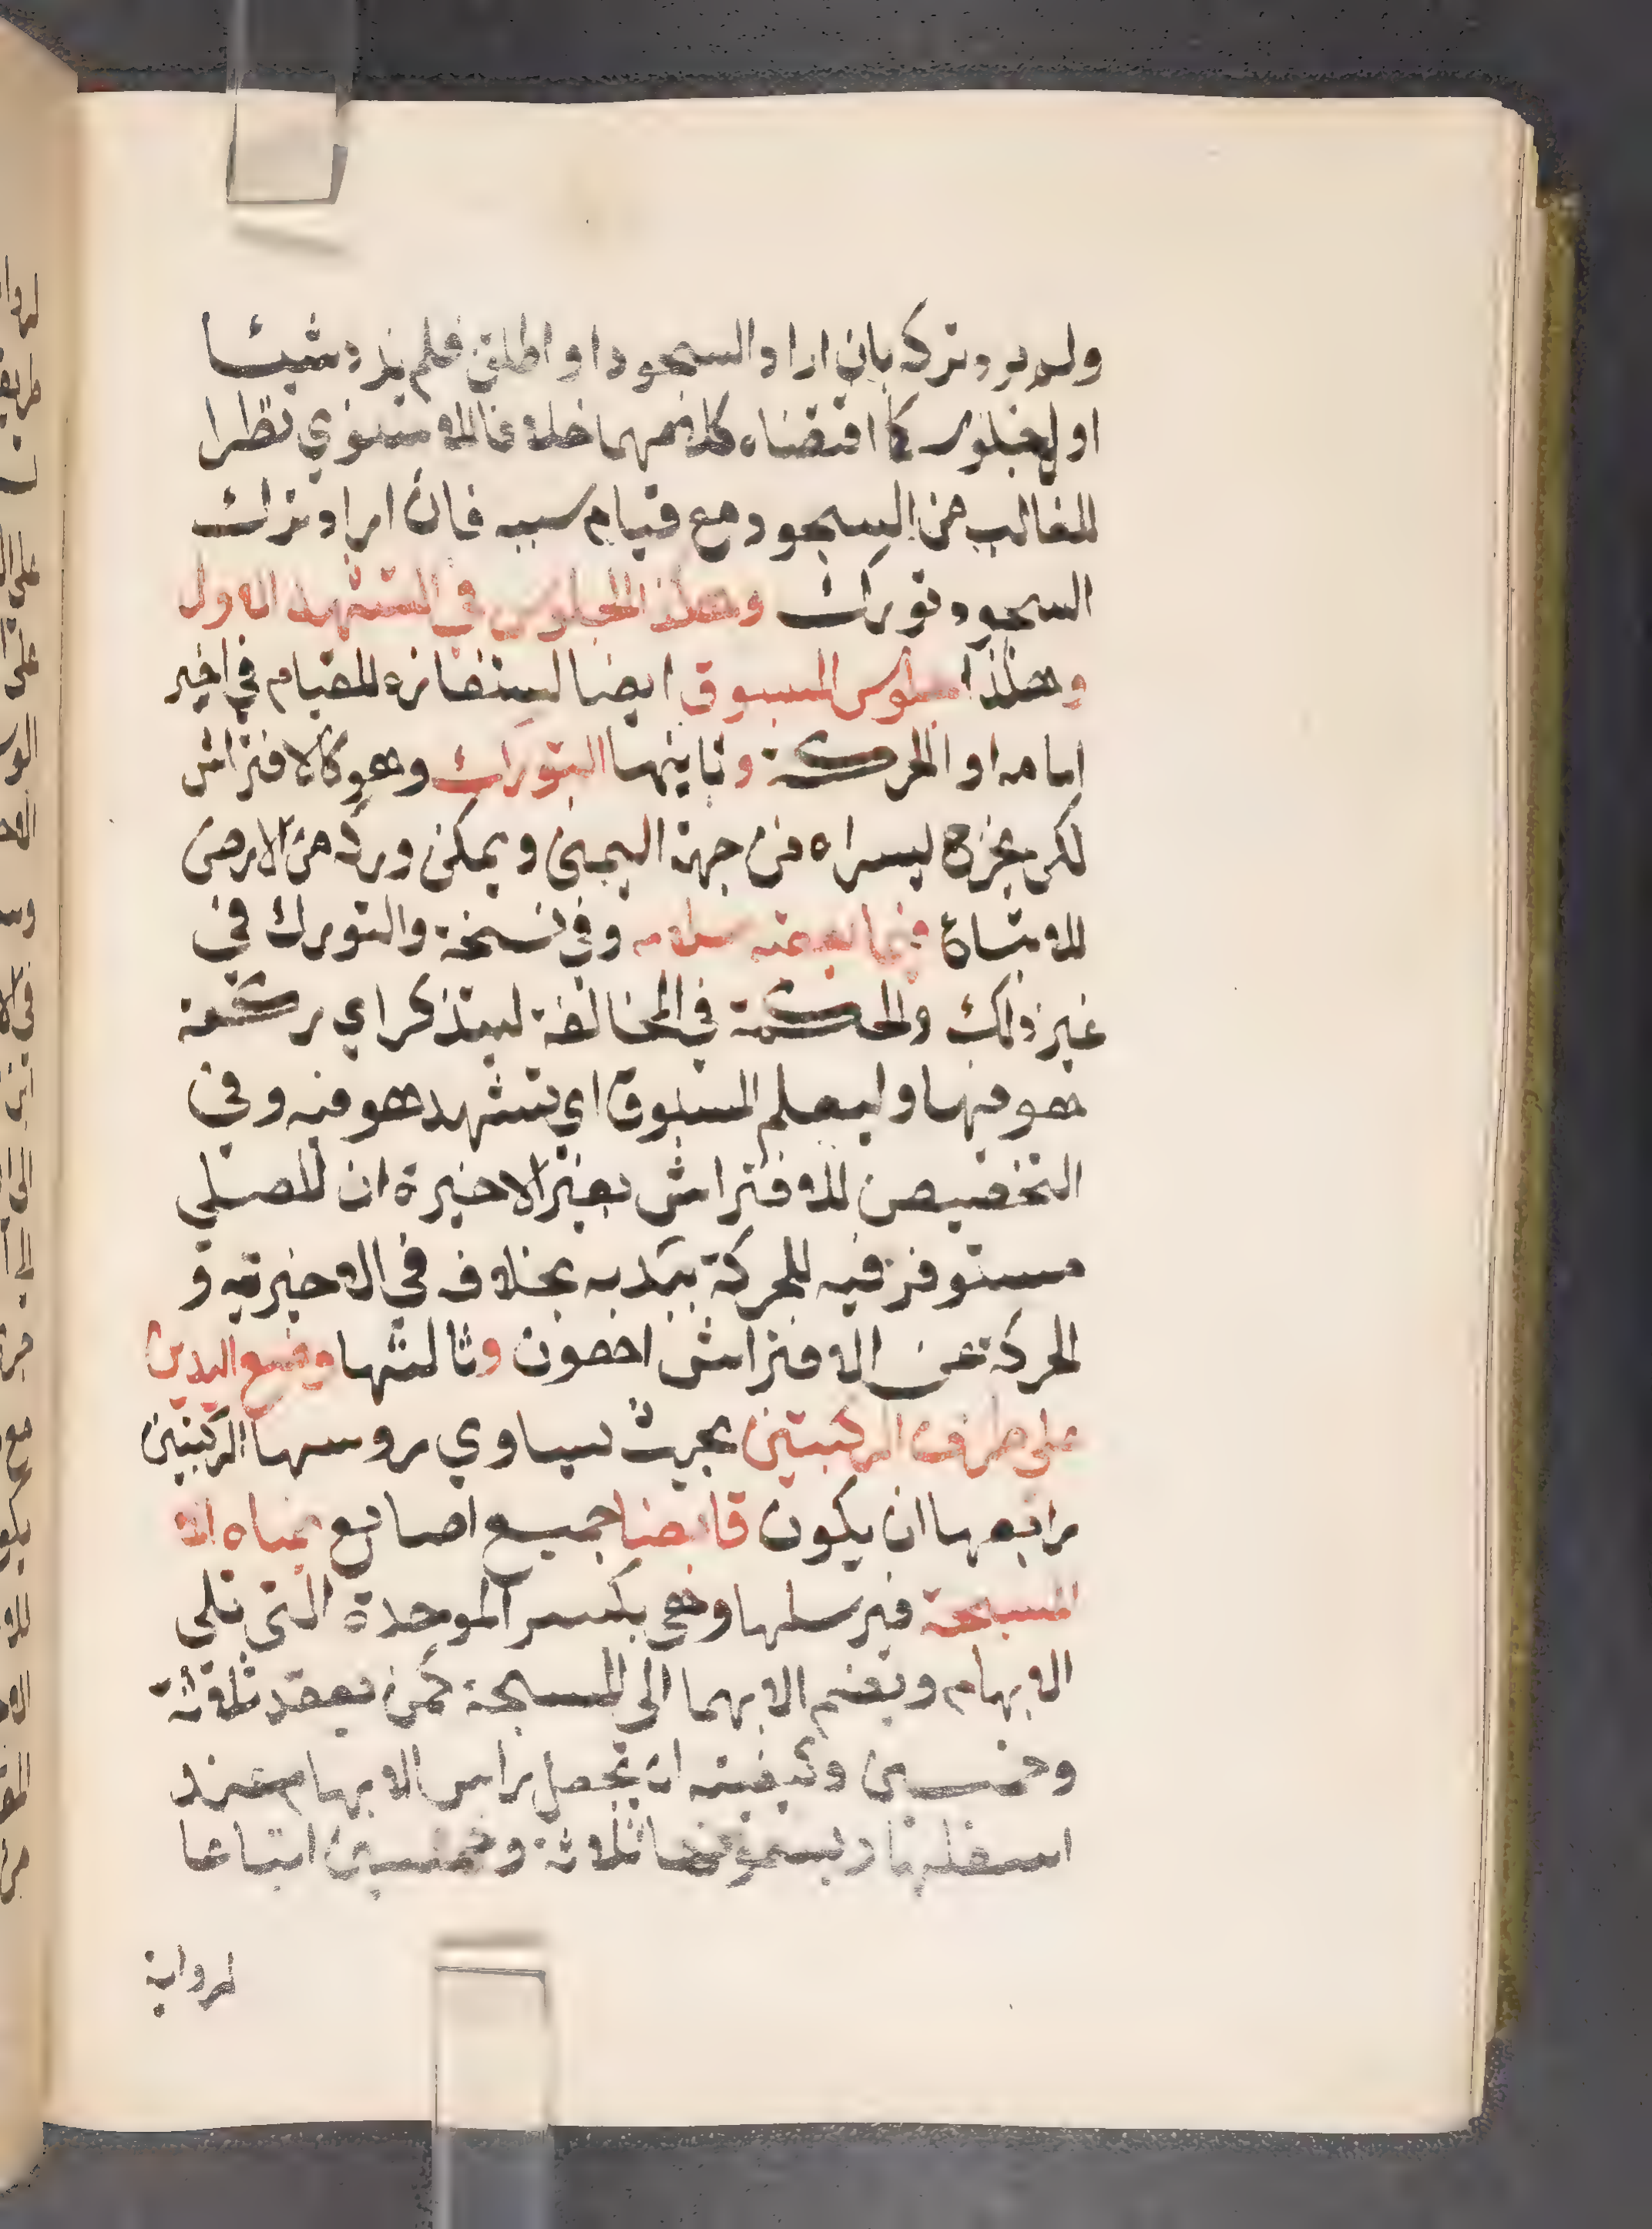 ولم يرد تركه بان اراد السجود او اطلق فلم يرد شيئا
او كما اقتضاه كلامهما خلافا للاسنوي نظرا
للغالب من السجود مع قيام سببه فان اراد ترك
السجود تورك وهكذا الجلوس في التشهد الاول
وهكذا جلوس المسبوق ايضا ليستفازه للقيام في اخير
امامه او الحركة وثانيها التورك وهو كالافتراش
لكن يخرج يسراه من جهة اليمنى ويمكن وركه من الارض
للاتباع فيما يعقبه سلامه وفي نسخة والتورك في
غير ذلك والحكمة في المخالفة ليتذكر اي ركعة
هو فيها وليعلم المسبوق اي تشهد هو فيه وفي
التخصيص للافتراش بغير الاخيرة ان المصلي
مستوفز فيه للحركة ببدبه بخلاف في الاخيرتيه و
الحركة عن الافتراش اهون وثالثها وضع اليدين
على طرف الركبتين بحيث يساوي روسها الركبتين
رابعها ان يكون قابضا جميع اصابع يمناه الا
المسبحة فيرسلها وهي بكسر الموحدة التي تلي
الابهام ويضم الابهما الى المسبحة كمن يعقد ثلاثة
وخمسين وكيفيته ان يجعل راس الابهام عند
اسفلها ويسمون هذا ثلاثة وخمسين اتباعا
لرواية